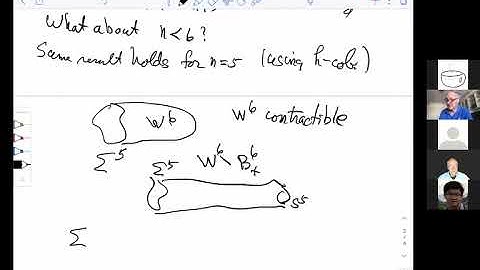 What about n<6?
Same result holds for n=5 (using h-cobx)
W⁶ W⁶ contractible
Σ⁵ Σ⁵ W⁶\ B⁶
S⁵
Σ